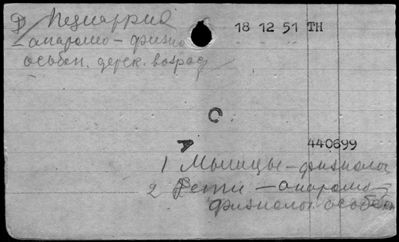 Педиатрия 18 12 51 ТН
анатомо-физио
особен. детск. возраст
С
А
440699
1 Мышцы - физиолог
2 Дети - анатомо-
физиолог особен